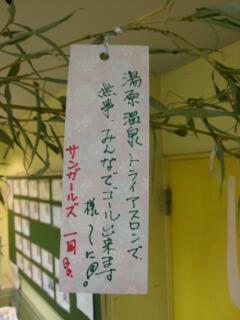 湯原温泉トライアスロンで、
無事、みんなでゴール出来ます
様に
サンガールズ 一同